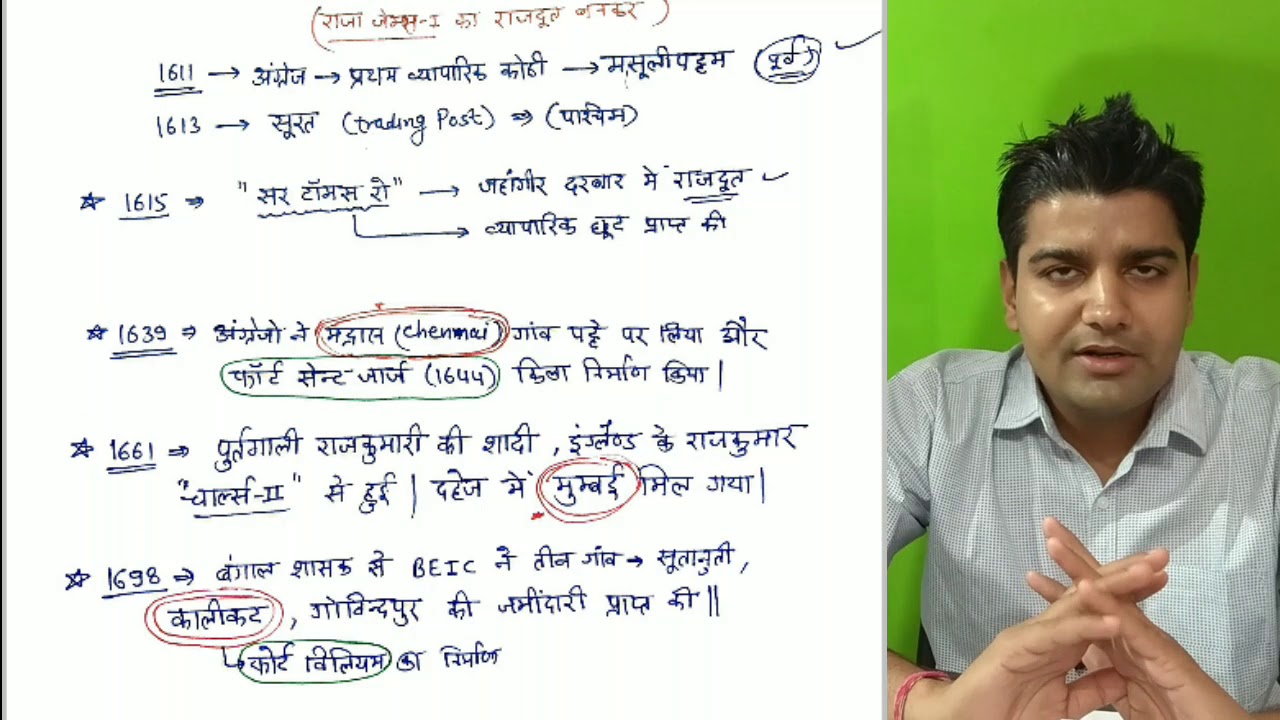 (राजा जेम्स-I का राजदूत बनकर)
1611 → अंग्रेज → प्रथम व्यापारिक कोठी → मसूलीपट्टम (पूर्व)
1613 → सूरत (trading Post) ⇒ (पश्चिम)
★ 1615 ⇒ "सर टॉमस रो" → जहांगीर दरबार में राजदूत
→ व्यापारिक छूट प्राप्त की
★ 1639 ⇒ अंग्रेजो ने मद्रास (Chennai) गांव पट्टे पर लिया और
फॉर्ट सेन्ट जार्ज (1644) किला निर्माण किया |
★ 1661 ⇒ पुर्तगाली राजकुमारी की शादी, इंग्लैण्ड के राजकुमार
"चार्ल्स-II" से हुई | दहेज में मुम्बई मिल गया |
★ 1698 ⇒ बंगाल शासक से BEIC ने तीन गांव → सूतानुती,
कालीकट, गोविन्दपुर की जमींदारी प्राप्त की ||
↳ फोर्ट विलियम का निर्माण